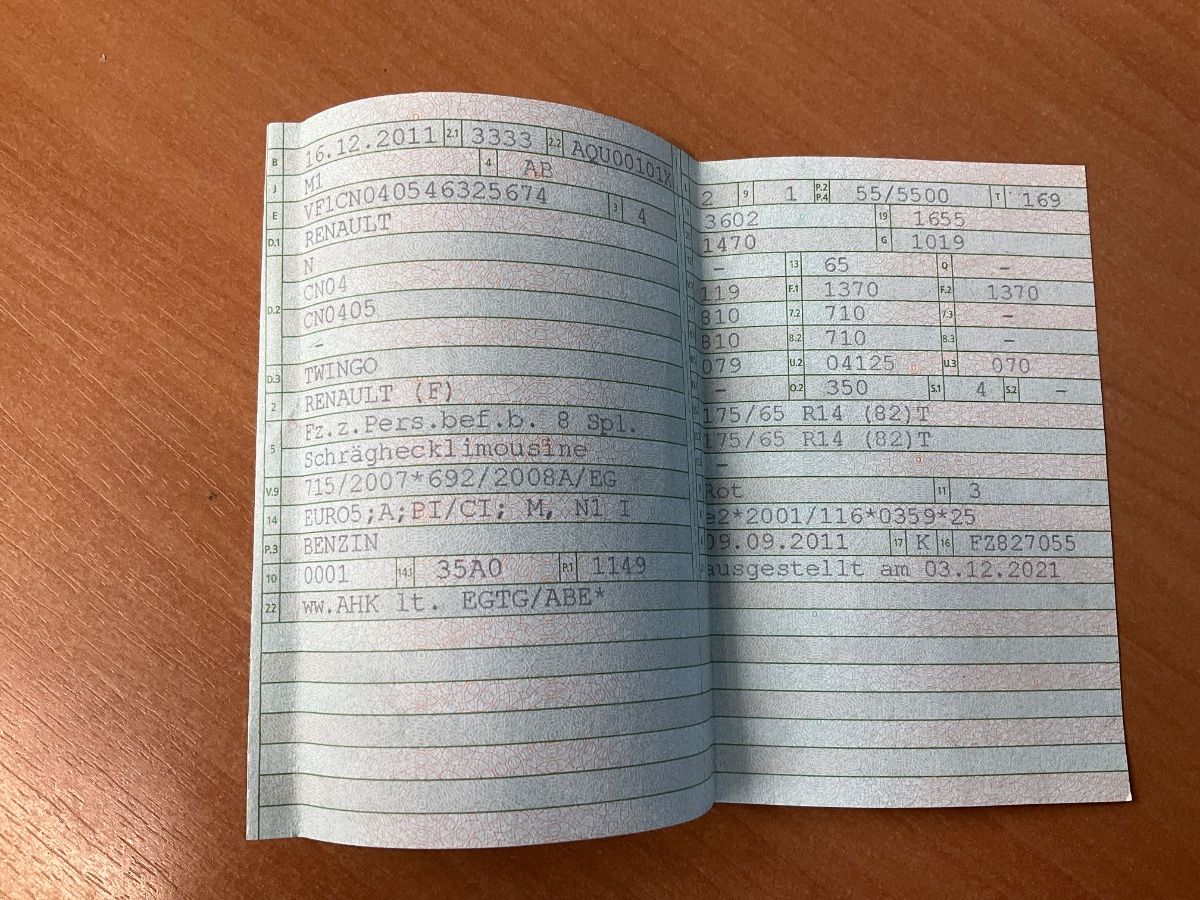 B 16.12.2011 2.1 3333 2.2 AQU00101X
J M1 4 AB
E VF1CN040546325674 3 4
D.1 RENAULT
N
D.2 CN04
CN0405
-
D.3 TWINGO
2 RENAULT (F)
5 Fz.z.Pers.bef.b. 8 Spl.
Schräghecklimousine
V.9 715/2007*692/2008A/EG
14 EURO5;A;BI/CI; M, N1 I
P.3 BENZIN
10 0001 14.1 35A0 P.1 1149
22 ww.AHK lt. EGTG/ABE*
2 9 1 P.2 P.4 55/5500 T 169
3602 19 1655
1470 G 1019
- 13 65 Q -
119 F.1 1370 F.2 1370
810 7.2 710 7.3 -
810 8.2 710 8.3 -
079 U.2 04125 U.3 070
- O.2 350 S.1 4 S.2 -
175/65 R14 (82)T
175/65 R14 (82)T
-
Rot 11 3
e2*2001/116*0359*25
09.09.2011 17 K 16 FZ827055
ausgestellt am 03.12.2021